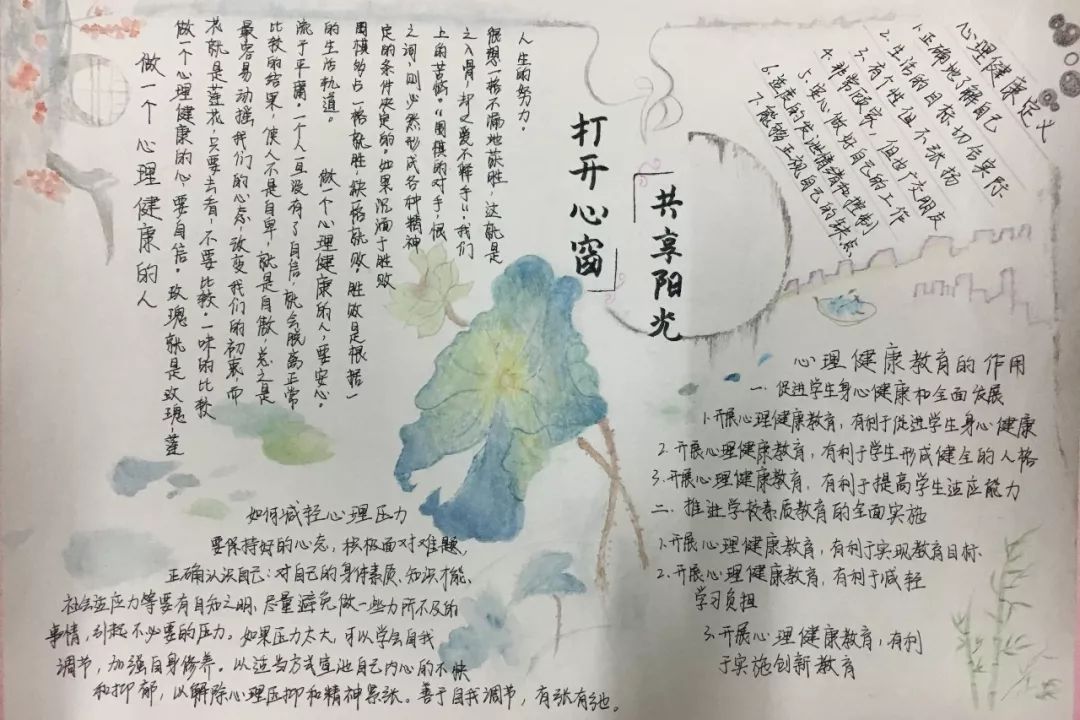 打开心窗
共享阳光
做一个心理健康的人
做一个心理健康的心,要自信。玫瑰就是玫瑰,莲
花就是莲花,只要去看,不要比较。一味的比较
最容易动摇我们的心态,改变我们的初衷,而
比较的结果,使人不是自卑,就是自傲,总之是
流于平庸。一个人一旦没有了自信,就会脱离正常
的生活轨道。 做一个心理健康的人,要安心。
围棋多占一格就胜,缺一格就败。胜败是根据一
定的条件决定的。如果沉湎于胜败
之间,则必然形成各种精神
上的苦恼。“围棋的对手,恨
之入骨,却又爱不释手”,我们
很想一格不漏地获胜,这就是
人生的努力。
心理健康定义
1.正确地了解自己
2.生活的目标切合实际
3.有个性但不张扬
4.非常顾家,但也广交朋友
5.安心做好自己的工作
6.适度的发泄情绪和控制
7.能够正视自己的缺点
心理健康教育的作用
一.促进学生身心健康和全面发展
1.开展心理健康教育,有利于促进学生身心健康
2.开展心理健康教育,有利于学生形成健全的人格
3.开展心理健康教育,有利于提高学生适应能力
二、推进学校素质教育的全面实施
1.开展心理健康教育,有利于实现教育目标
2.开展心理健康教育,有利于减轻
学习负担
3.开展心理健康教育,有利
于实施创新教育
如何减轻心理压力
要保持好的心态,积极面对难题,
正确认识自己:对自己的身体素质、知识才能、
社会适应力等要有自知之明,尽量避免做一些力所不及的
事情,引起不必要的压力。如果压力太大,可以学会自我
调节,加强自身修养。以适当方式宣泄自己内心的不快
和抑郁,以解除心理压抑和精神紧张。善于自我调节,有张有弛。